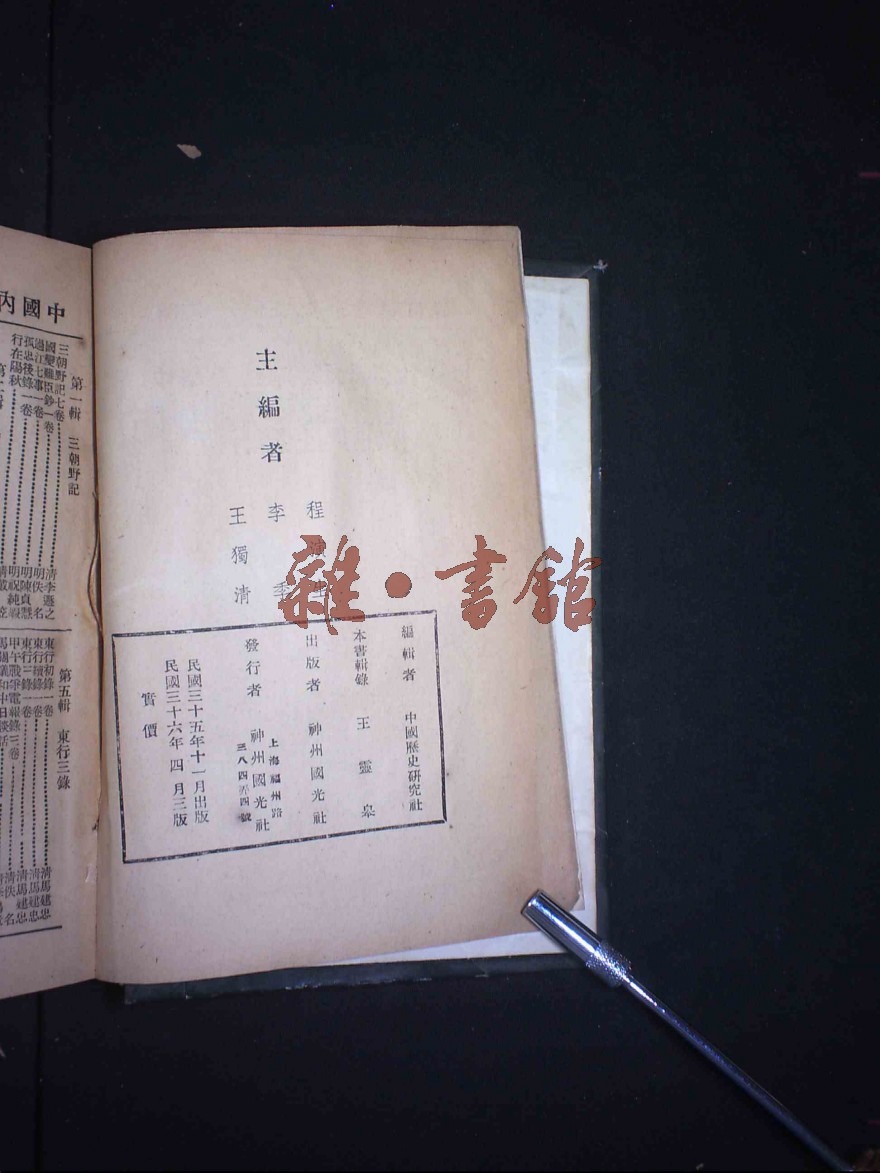 主編者
程演生
李季
王獨清
編輯者 中國歷史研究社
本書輯錄 王靈皋
出版者 神州國光社
發行者 神州國光社
上海福州路
三八四弄四號
民國三十五年十一月出版
民國三十六年四月三版
實價
中國內
第一輯 三朝野記
三朝野記七卷 清李遜之
國變難臣鈔一卷 明佚名
過江七事一卷 明陳貞慧
孤忠後錄一卷 明祝純嘏
行在陽秋
第五輯 東行三錄
東行初錄一卷 清馬建忠
東行續錄一卷 清馬建忠
東行三錄一卷 清馬建忠
甲午戰爭電報錄三卷 清佚名
馬關議和中日談話
雜·書館